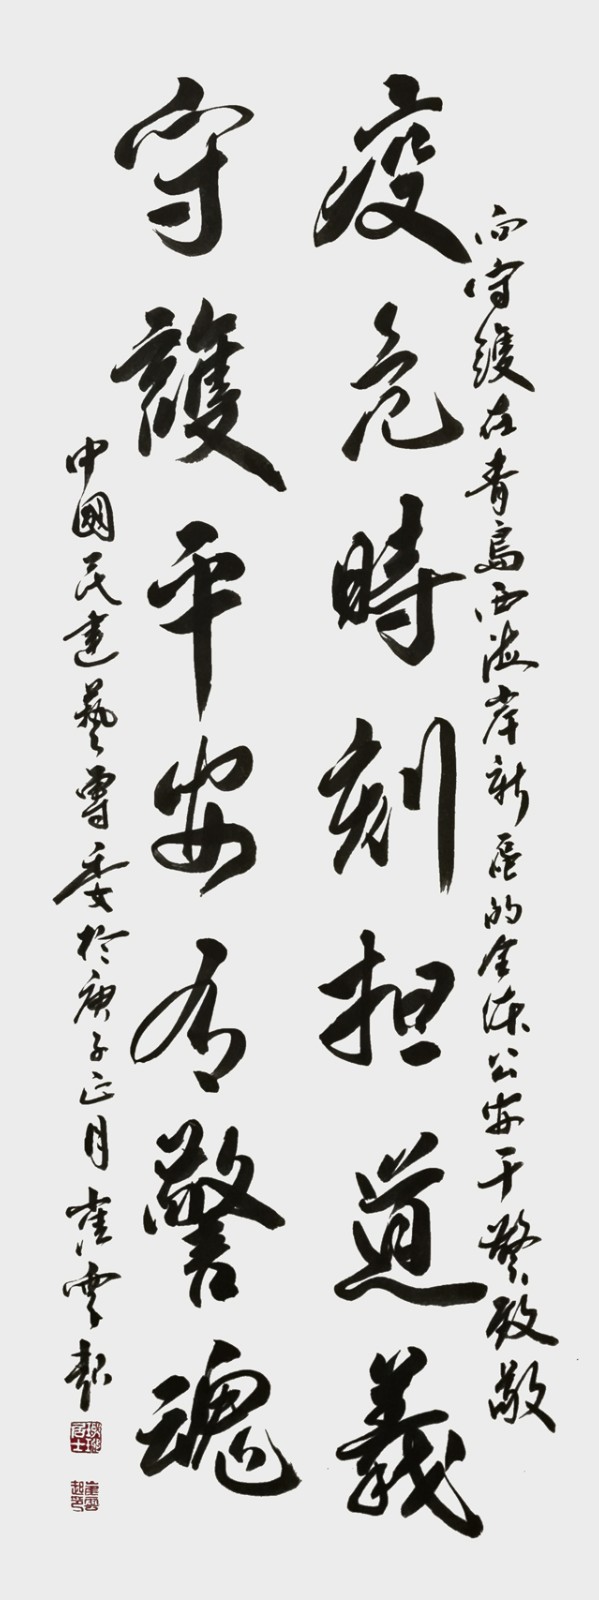 向守護在青島西海岸新區的全体公安干警致敬
疫危時刻担道義
守護平安有警魂
中國民建藝專委於庚子正月崔雲超
居士
崔雲超印